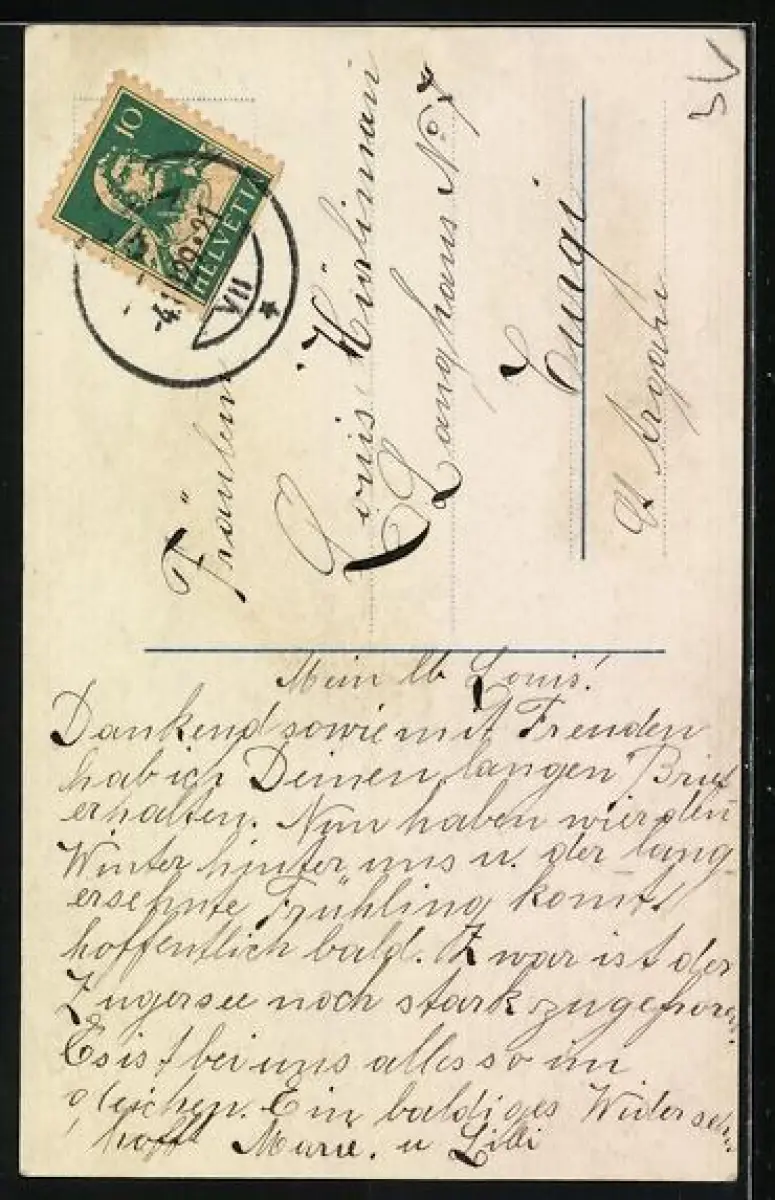 10
HELVETIA
29·21
VII
Fräulein
Louis Hürlimann
Langhaus No 7
Turgi
Kt Argau
Mein lb Louis!
Dankend sowie mit Freuden
hab ich Deinen langen Brief
erhalten. Nun haben wir den
Winter hinter uns u. der lang
ersehnte Frühling komt
hoffentlich bald. Zwar ist der
Zugersee noch stark zugefroren.
Es ist bei uns alles so im
gleichen. Ein baldiges Widersehn
hofft Marie. u Lilli